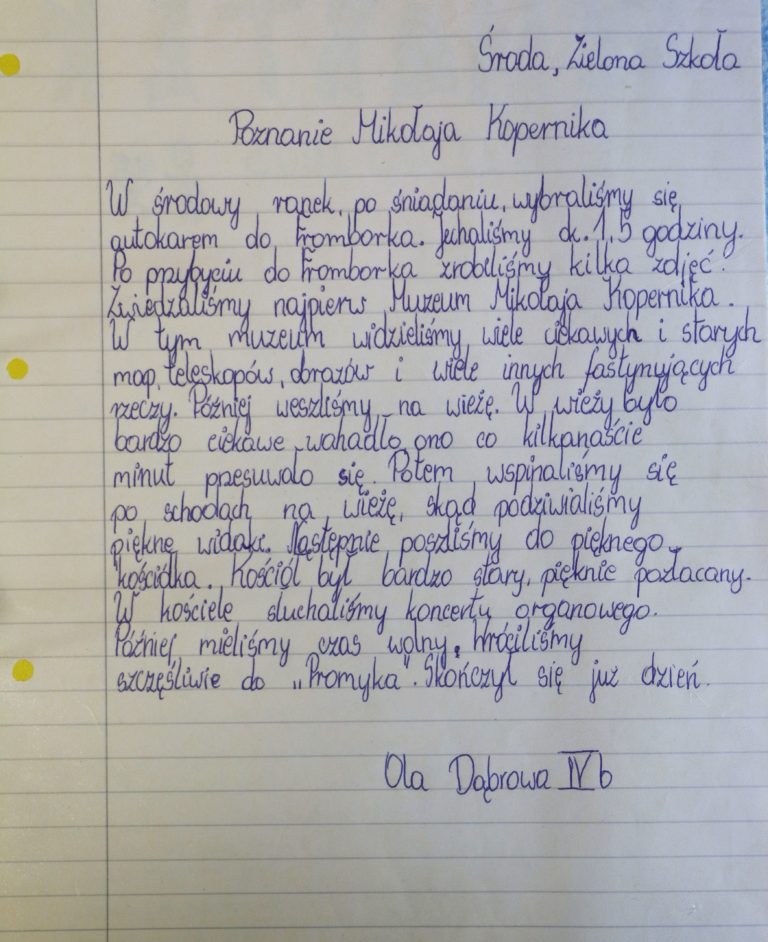 Środa, Zielona Szkoła
Poznanie Mikołaja Kopernika
W środowy ranek, po śniadaniu, wybraliśmy się
autokarem do Fromborka. Jechaliśmy ok. 1,5 godziny.
Po przybyciu do Fromborka zrobiliśmy kilka zdjęć.
Zwiedzaliśmy najpierw Muzeum Mikołaja Kopernika.
W tym muzeum widzieliśmy wiele ciekawych i starych
map, teleskopów, obrazów i wiele innych fastynujących
rzeczy. Później weszliśmy na wieżę. W wieży było
bardzo ciekawe wahadło, ono co kilkanaście
minut przesuwało się. Potem wspinaliśmy się
po schodach na wieżę, skąd podziwialiśmy
piękne widoki. Następnie poszliśmy do pięknego
kościółka. Kościół był bardzo stary, pięknie pozłacany.
W kościele słuchaliśmy koncertu organowego.
Później mieliśmy czas wolny. Wróciliśmy
szczęśliwie do „Promyka”. Skończył się już dzień.
Ola Dąbrowa IV b